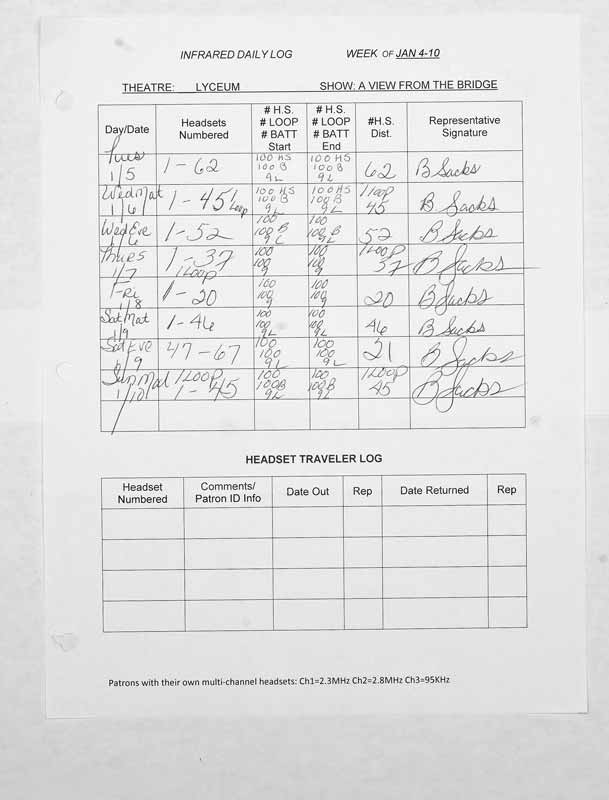 INFRARED DAILY LOG WEEK OF JAN 4-10
THEATRE: LYCEUM SHOW: A VIEW FROM THE BRIDGE
Day/Date Headsets Numbered # H.S. # LOOP # BATT Start # H.S. # LOOP # BATT End #H.S. Dist. Representative Signature
Tues 1/5 1-62 100 HS 100 B 9 L 100 HS 100 B 9 L 62 B Sacks
Wed Mat 1/6 1-45 1 Loop 100 HS 100 B 9 L 100 HS 100 B 9 L 1 Loop 45 B Sacks
Wed Eve 1/6 1-52 100 100 B 9 L 100 100 B 9 L 52 B Sacks
Thurs 1/7 1-37 1 Loop 100 100 9 100 100 9 1 LOOP 37 B Sacks
Fri 1/8 1-20 100 100 9 100 100 9 20 B Sacks
Sat Mat 1/9 1-46 100 100 9 L 100 100 9 L 46 B Sacks
Sat Eve 1/9 47-67 100 100 9 L 100 100 9 L 21 B Sacks
Sun Mat 1/10 1 LOOP 1-45 100 100B 9 L 100 100 B 9 L 1 LOOP 45 B Sacks
HEADSET TRAVELER LOG
Headset Numbered Comments/ Patron ID Info Date Out Rep Date Returned Rep
Patrons with their own multi-channel headsets: Ch1=2.3MHz Ch2=2.8MHz Ch3=95KHz